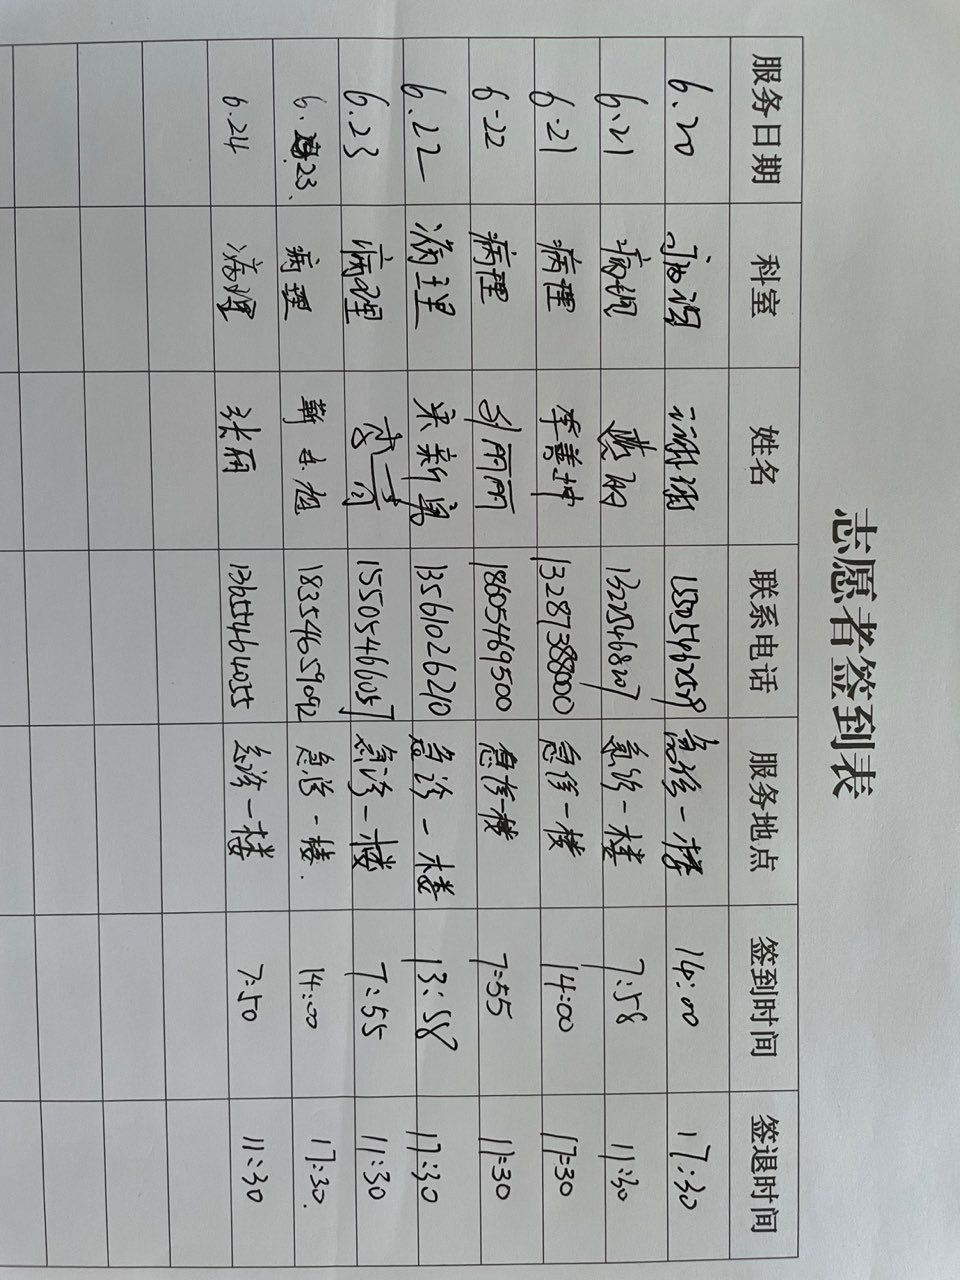 志愿者签到表
服务日期 科室 姓名 联系电话 服务地点 签到时间 签退时间
6.20 急诊一楼 14:00 17:30
6.21 急诊一楼 7:58 11:30
6.21 病理 李善坤 13287388000 急诊一楼 14:00 17:30
6.22 病理 刘丽丽 18605469500 急诊楼 7:55 11:30
6.22 病理 宋新勇 13561026210 急诊一楼 13:58 17:30
6.23 病理 15505466057 急诊一楼 7:55 11:30
6.23. 病理 18354659092 急诊一楼. 14:00 17:30.
6.24 病理 张丽 急诊一楼 7:50 11:30